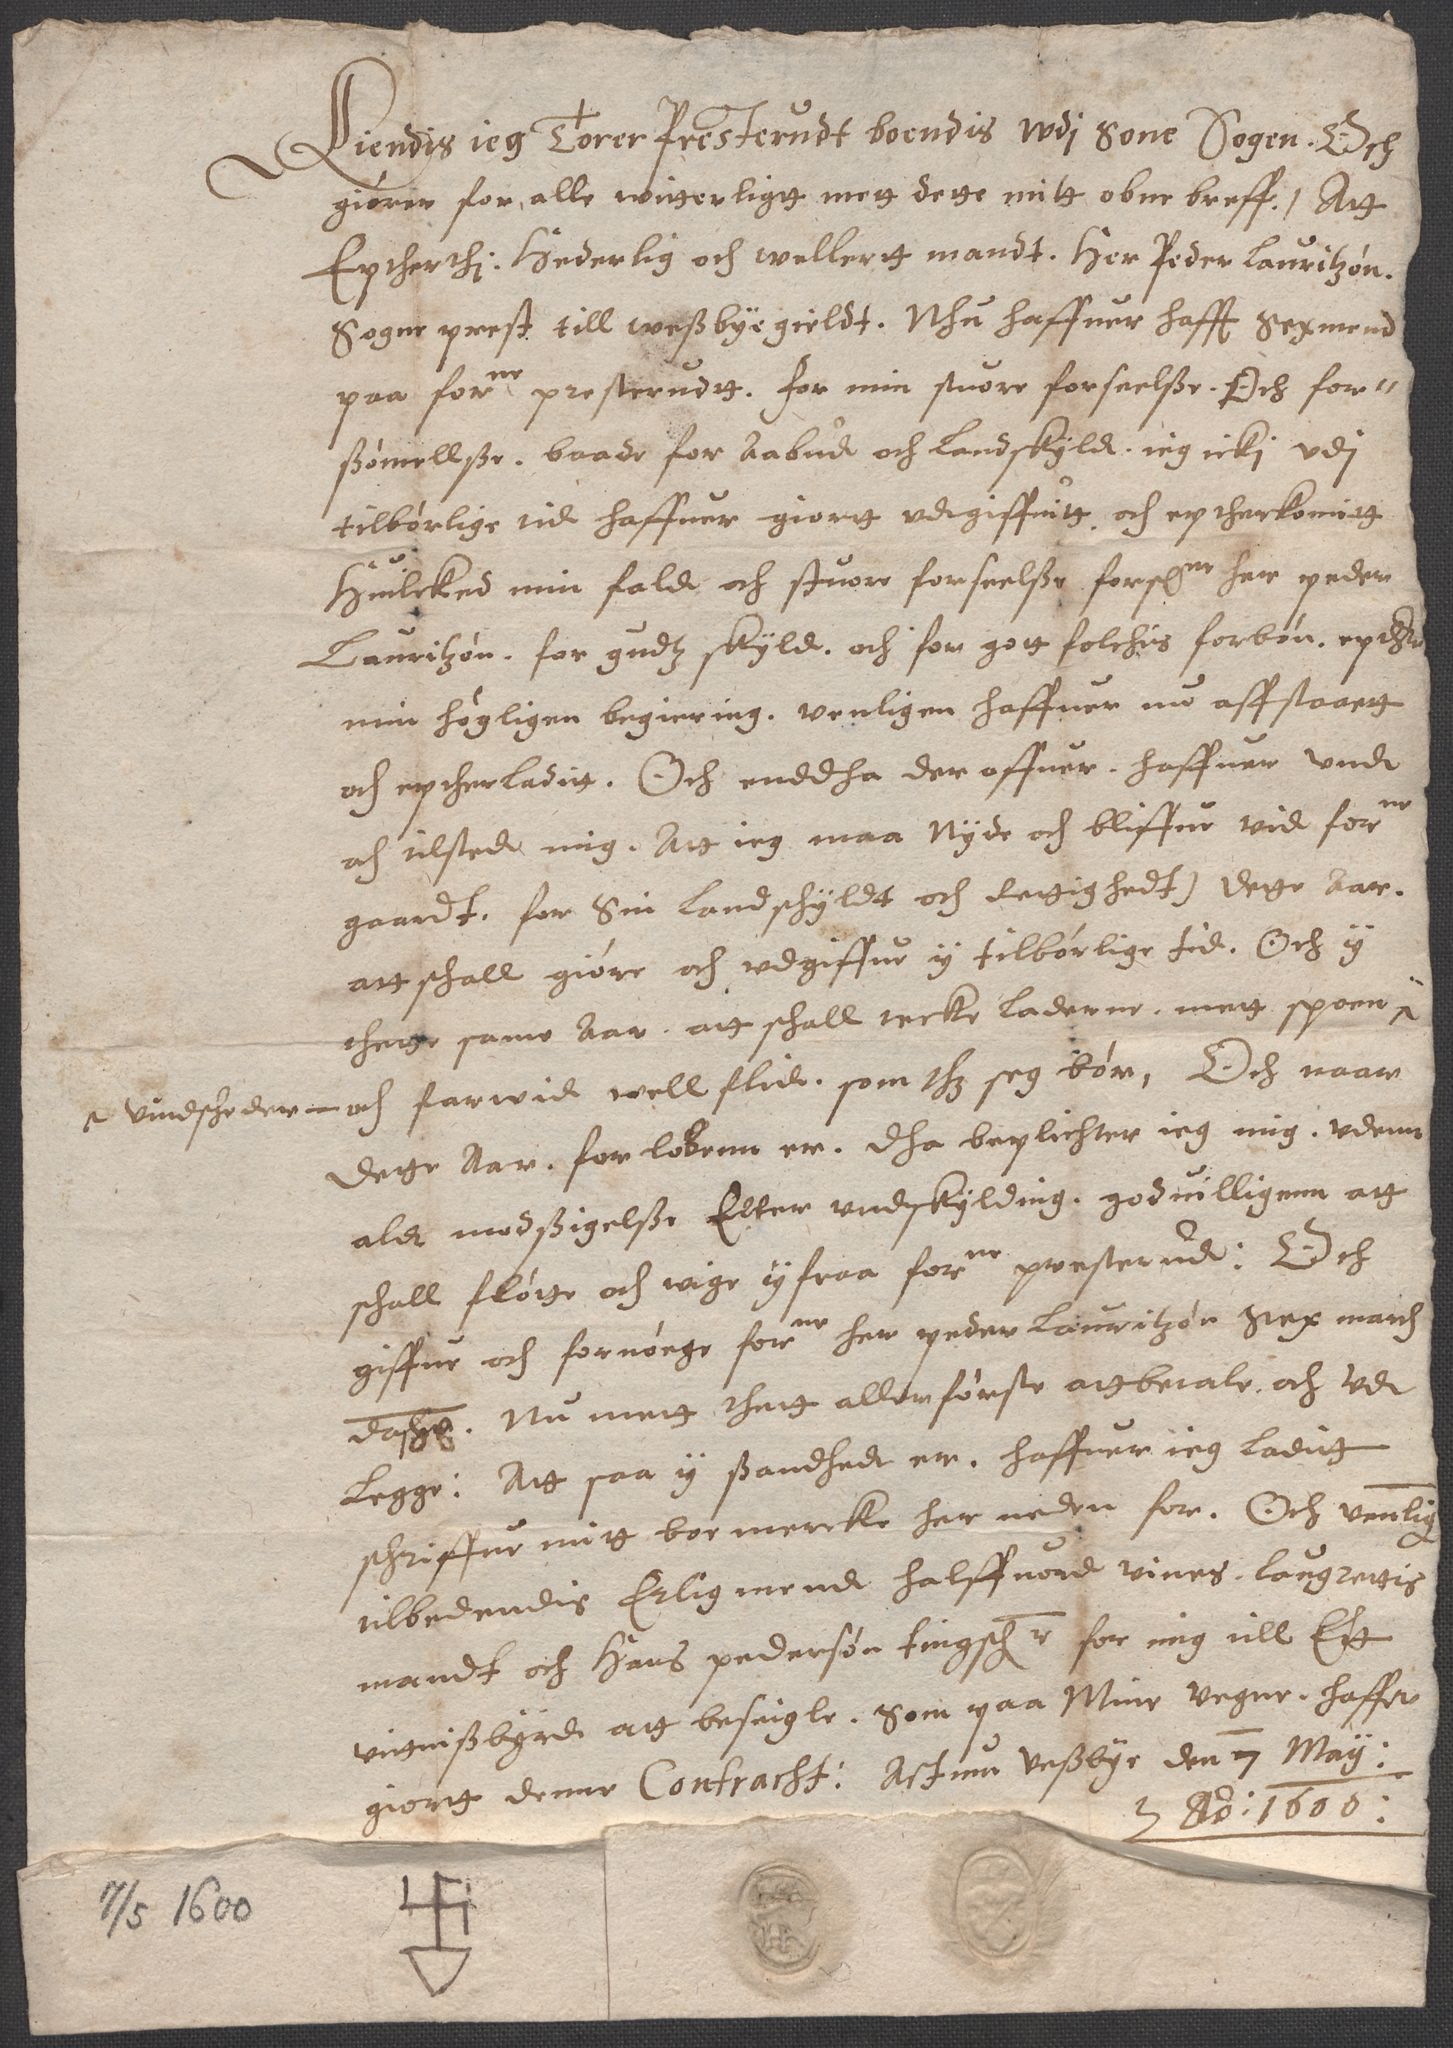 Kiendis ieg Torer Presterudt boendis wdj Sone Sogen. Och
giörer for alle witterligtt mett dette mitt obne breff. / Att
Eptherthj. Hederlig och wellertt mandt. Her Peder Lauritzön.
Sogne prest till wessbÿegieldt. Nhu haffuer hafft Sexmend
paa forne presterudtt. for min stuore forseelsse. Och for"
ssömellsse. baade for Aabud och Landskyld. ieg ickj vdj
tilbörlige tid haffuer giortt vdgiffuitt. och eptherkomitt
Huilcked min fald och stuore forseelsse forschne her peder
Lauritzön. for gudtz skyld. och for gott folchis forbön. epther
min högligen begiering. venligen haffuer nu affstaaett
och eptherladitt. Och enddha der offuer. haffuer vnd
och tilsted mig. Att ieg maa Nyde och bliffue vid forne
gaardt. for Sin Landschyldt och Rettighedt) dette Aar.
att schall giöre och vdgiffue ÿ tilbörlige tid. Och ÿ
thette same Aar. att schall tecke Laderne. mett spoen ^
^ vindscheder och farwid well flid. som thz seg bör, Och naar
dette Aar. forlobenn er. dha beplichter ieg mig. vdenn
ald modssigelsse Eller vndskylding. goduilligenn att
schall flötte och vige ÿfraa forne presterud: Och
giffue och fornöege forne her peder Lauritzön Sex march
danske. Nu mett thett allerförste att betale. och vd
Legge: Att saa ÿ ssandhed er. haffuer ieg Laditt
schriffue mitt boemercke her neden for. Och venlig
tilbedendis Erlig mend halffuord vines. Laugrettis
mandt och Hans pedersön tingschr for mig till Ett
vitnissbyrd att beseigle. Som paa Mine vegne. haffer
giortt denne Contracht: Actum Vessbÿe den 7 Maÿ:
Ao: 1600:
7/5 1600